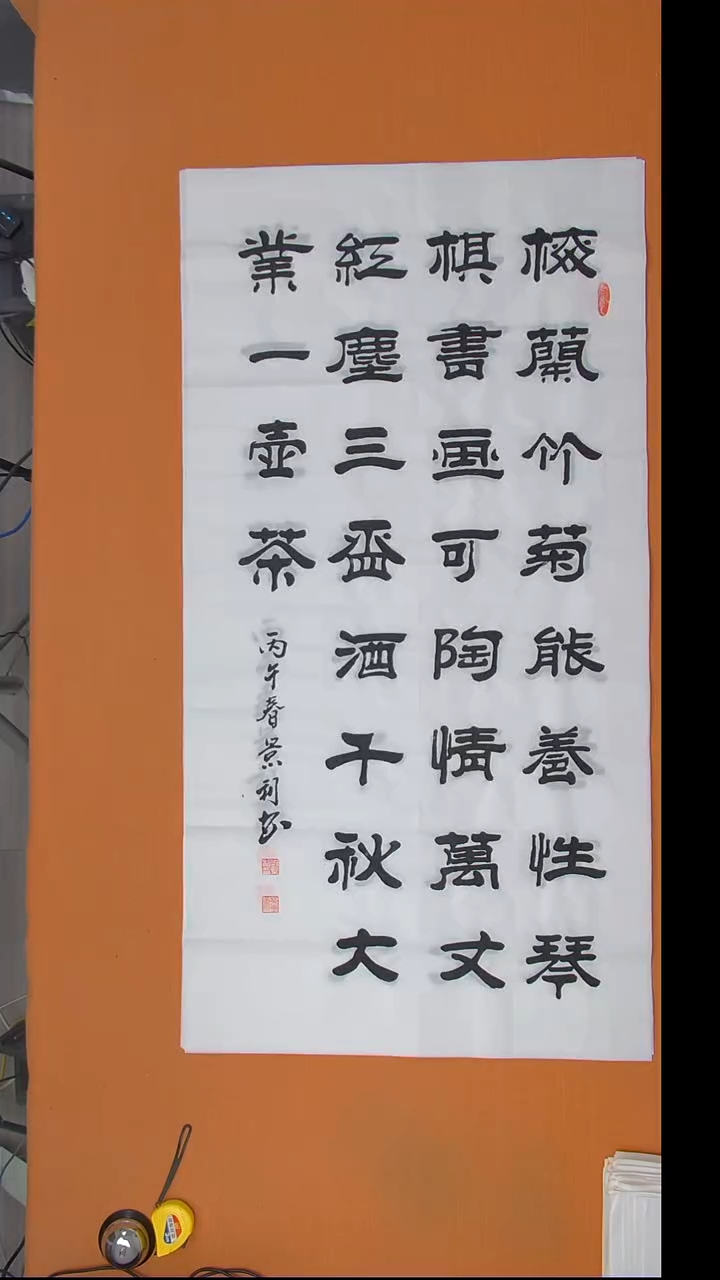 梅蘭竹菊能養性琴
棋書画可陶情萬丈
紅塵三盃酒千秋大
業一壺茶
丙午春景利书